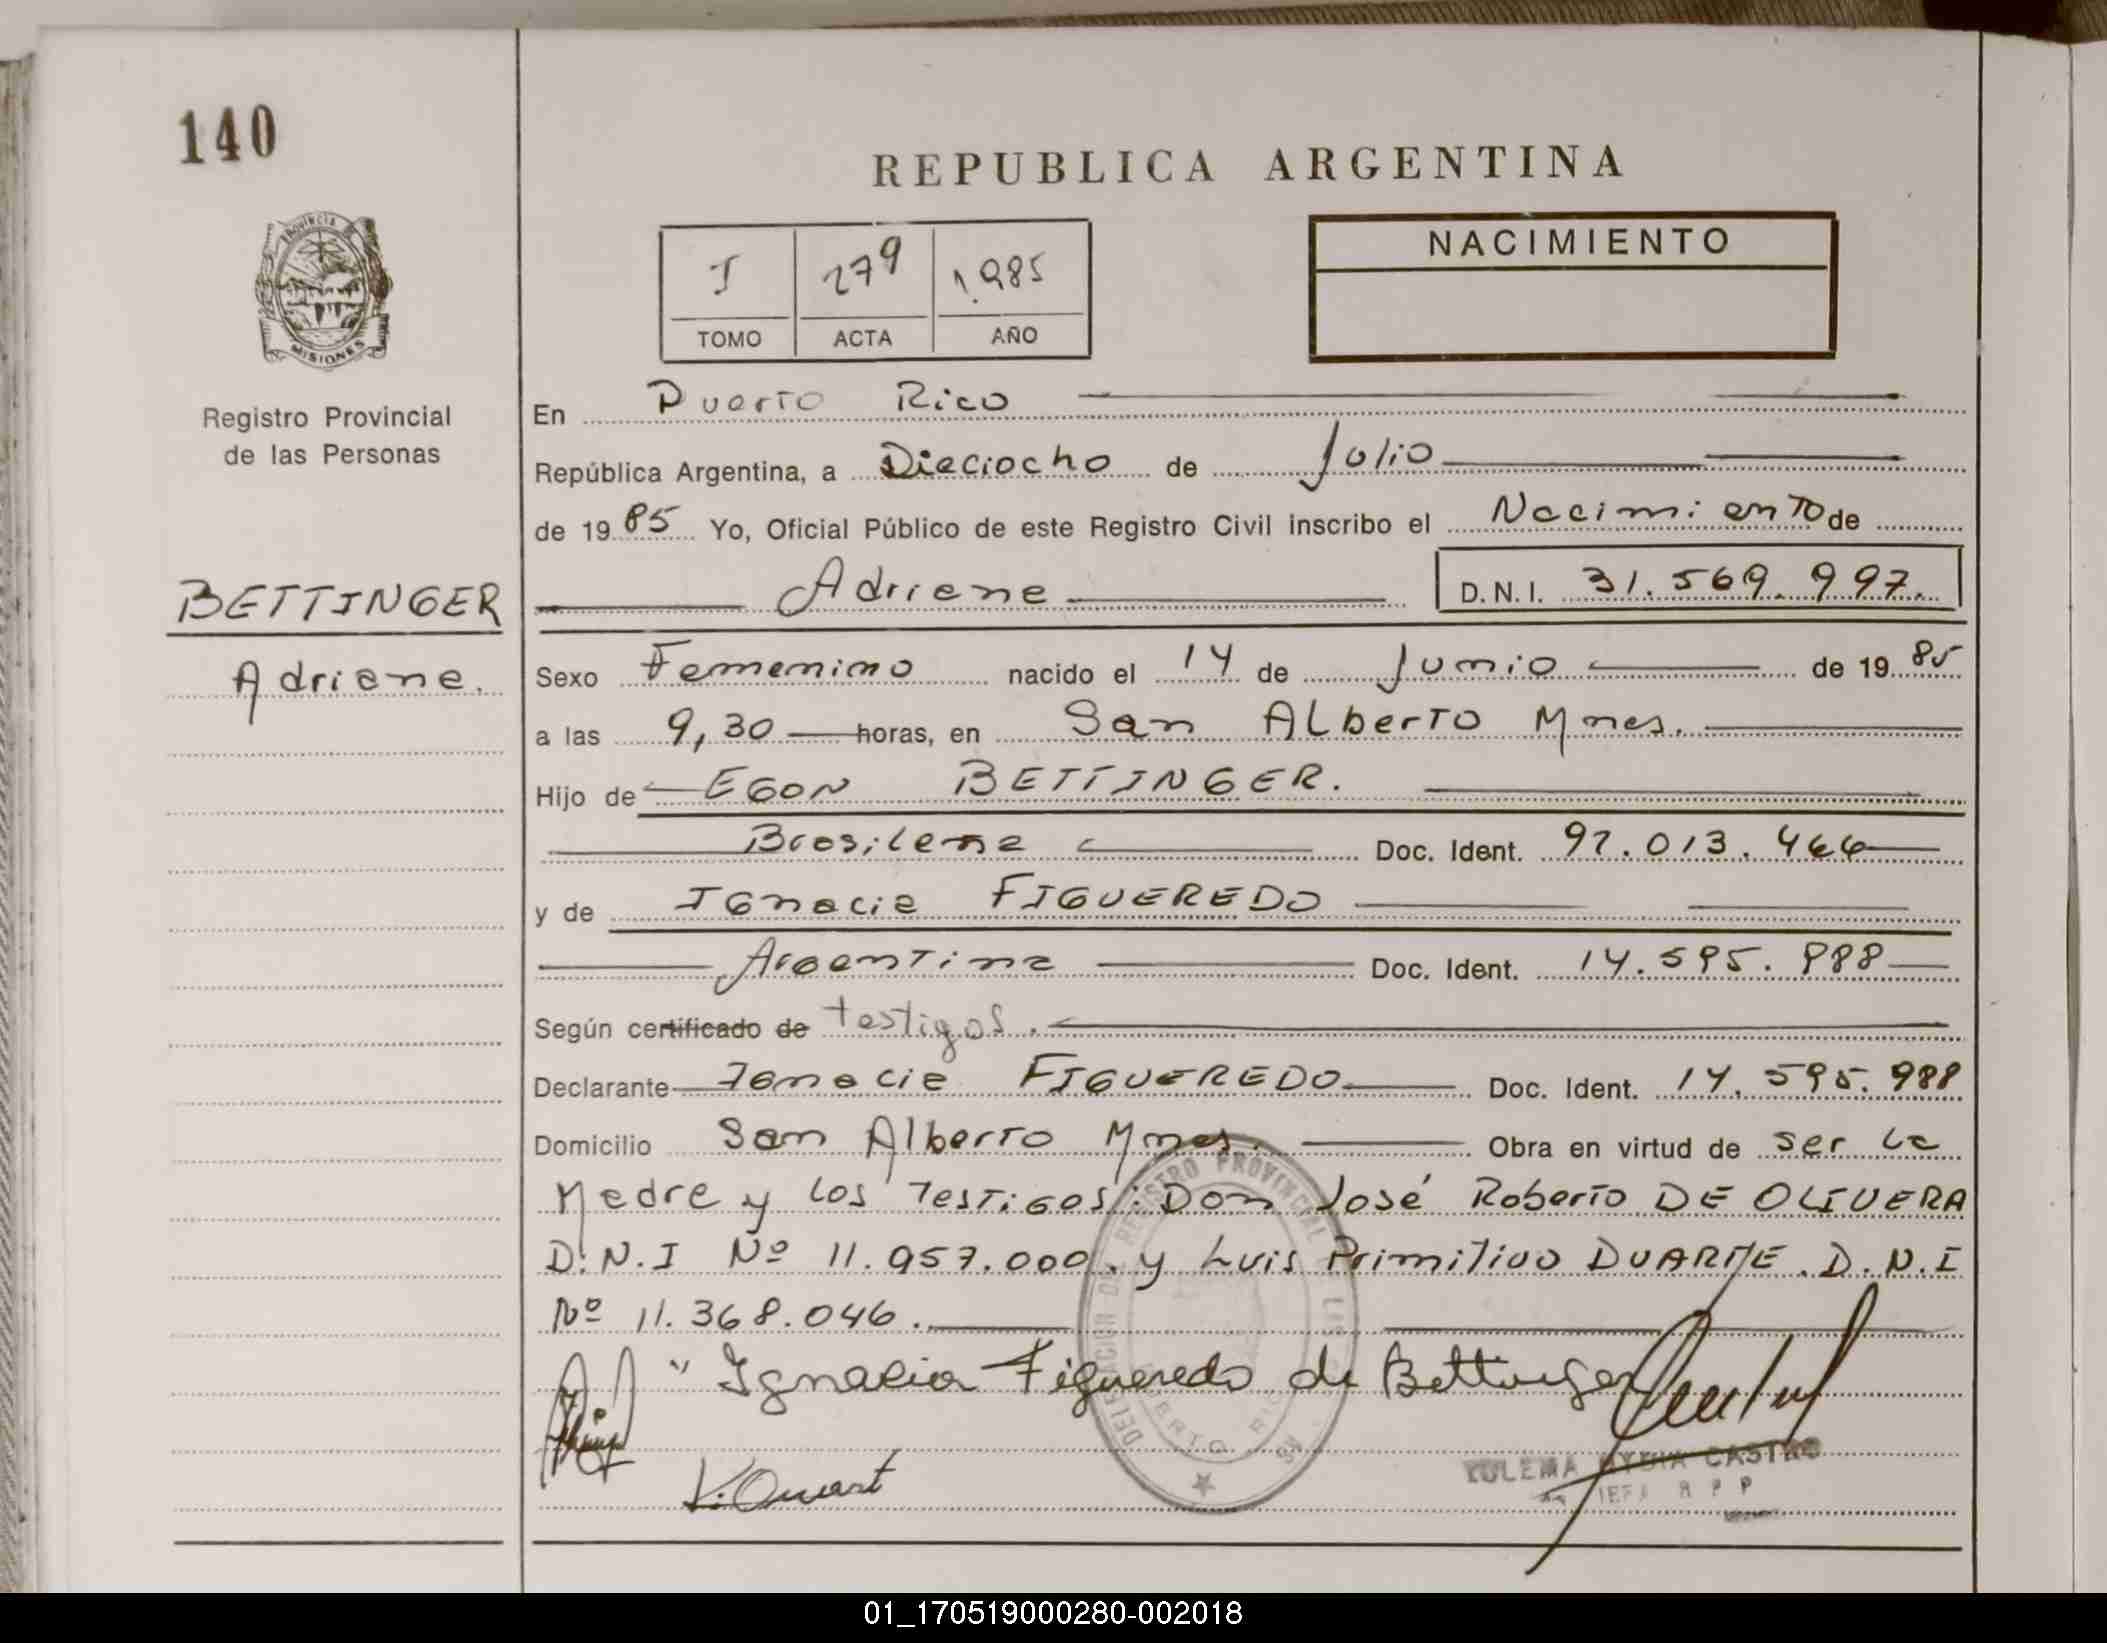 140
REPUBLICA ARGENTINA
PROVINCIA
MISIONES
Registro Provincial
de las Personas
I 279 1.985
TOMO ACTA AÑO
NACIMIENTO
En Puerto Rico
República Argentina, a Dieciocho de Julio
de 1985 Yo, Oficial Público de este Registro Civil inscribo el Nacimiento de
Adriana D.N.I. 31.569.997.
BETTINGER
Adriana.
Sexo Femenino nacido el 14 de Junio de 1985
a las 9,30 horas, en San Alberto Mnes.
Hijo de EGON BETTINGER.
Brasilena Doc. Ident. 92.013.466
y de Ignacia FIGUEREDO
Argentina Doc. Ident. 14.595.988
Según certificado de testigos.
Declarante Ignacia FIGUEREDO Doc. Ident. 14.595.988
Domicilio San Alberto Mnes. Obra en virtud de ser la
Madre y los Testigos: Don José Roberto DE OLIVERA
D.N.I Nº 11.957.000. y Luis Primitivo DUARTE. D.N.I
Nº 11.368.046.
"Ignacia Figueredo de Bettinger
DELEGACION DEL REGISTRO PROVINCIAL
PUERTO RICO
CASTRO